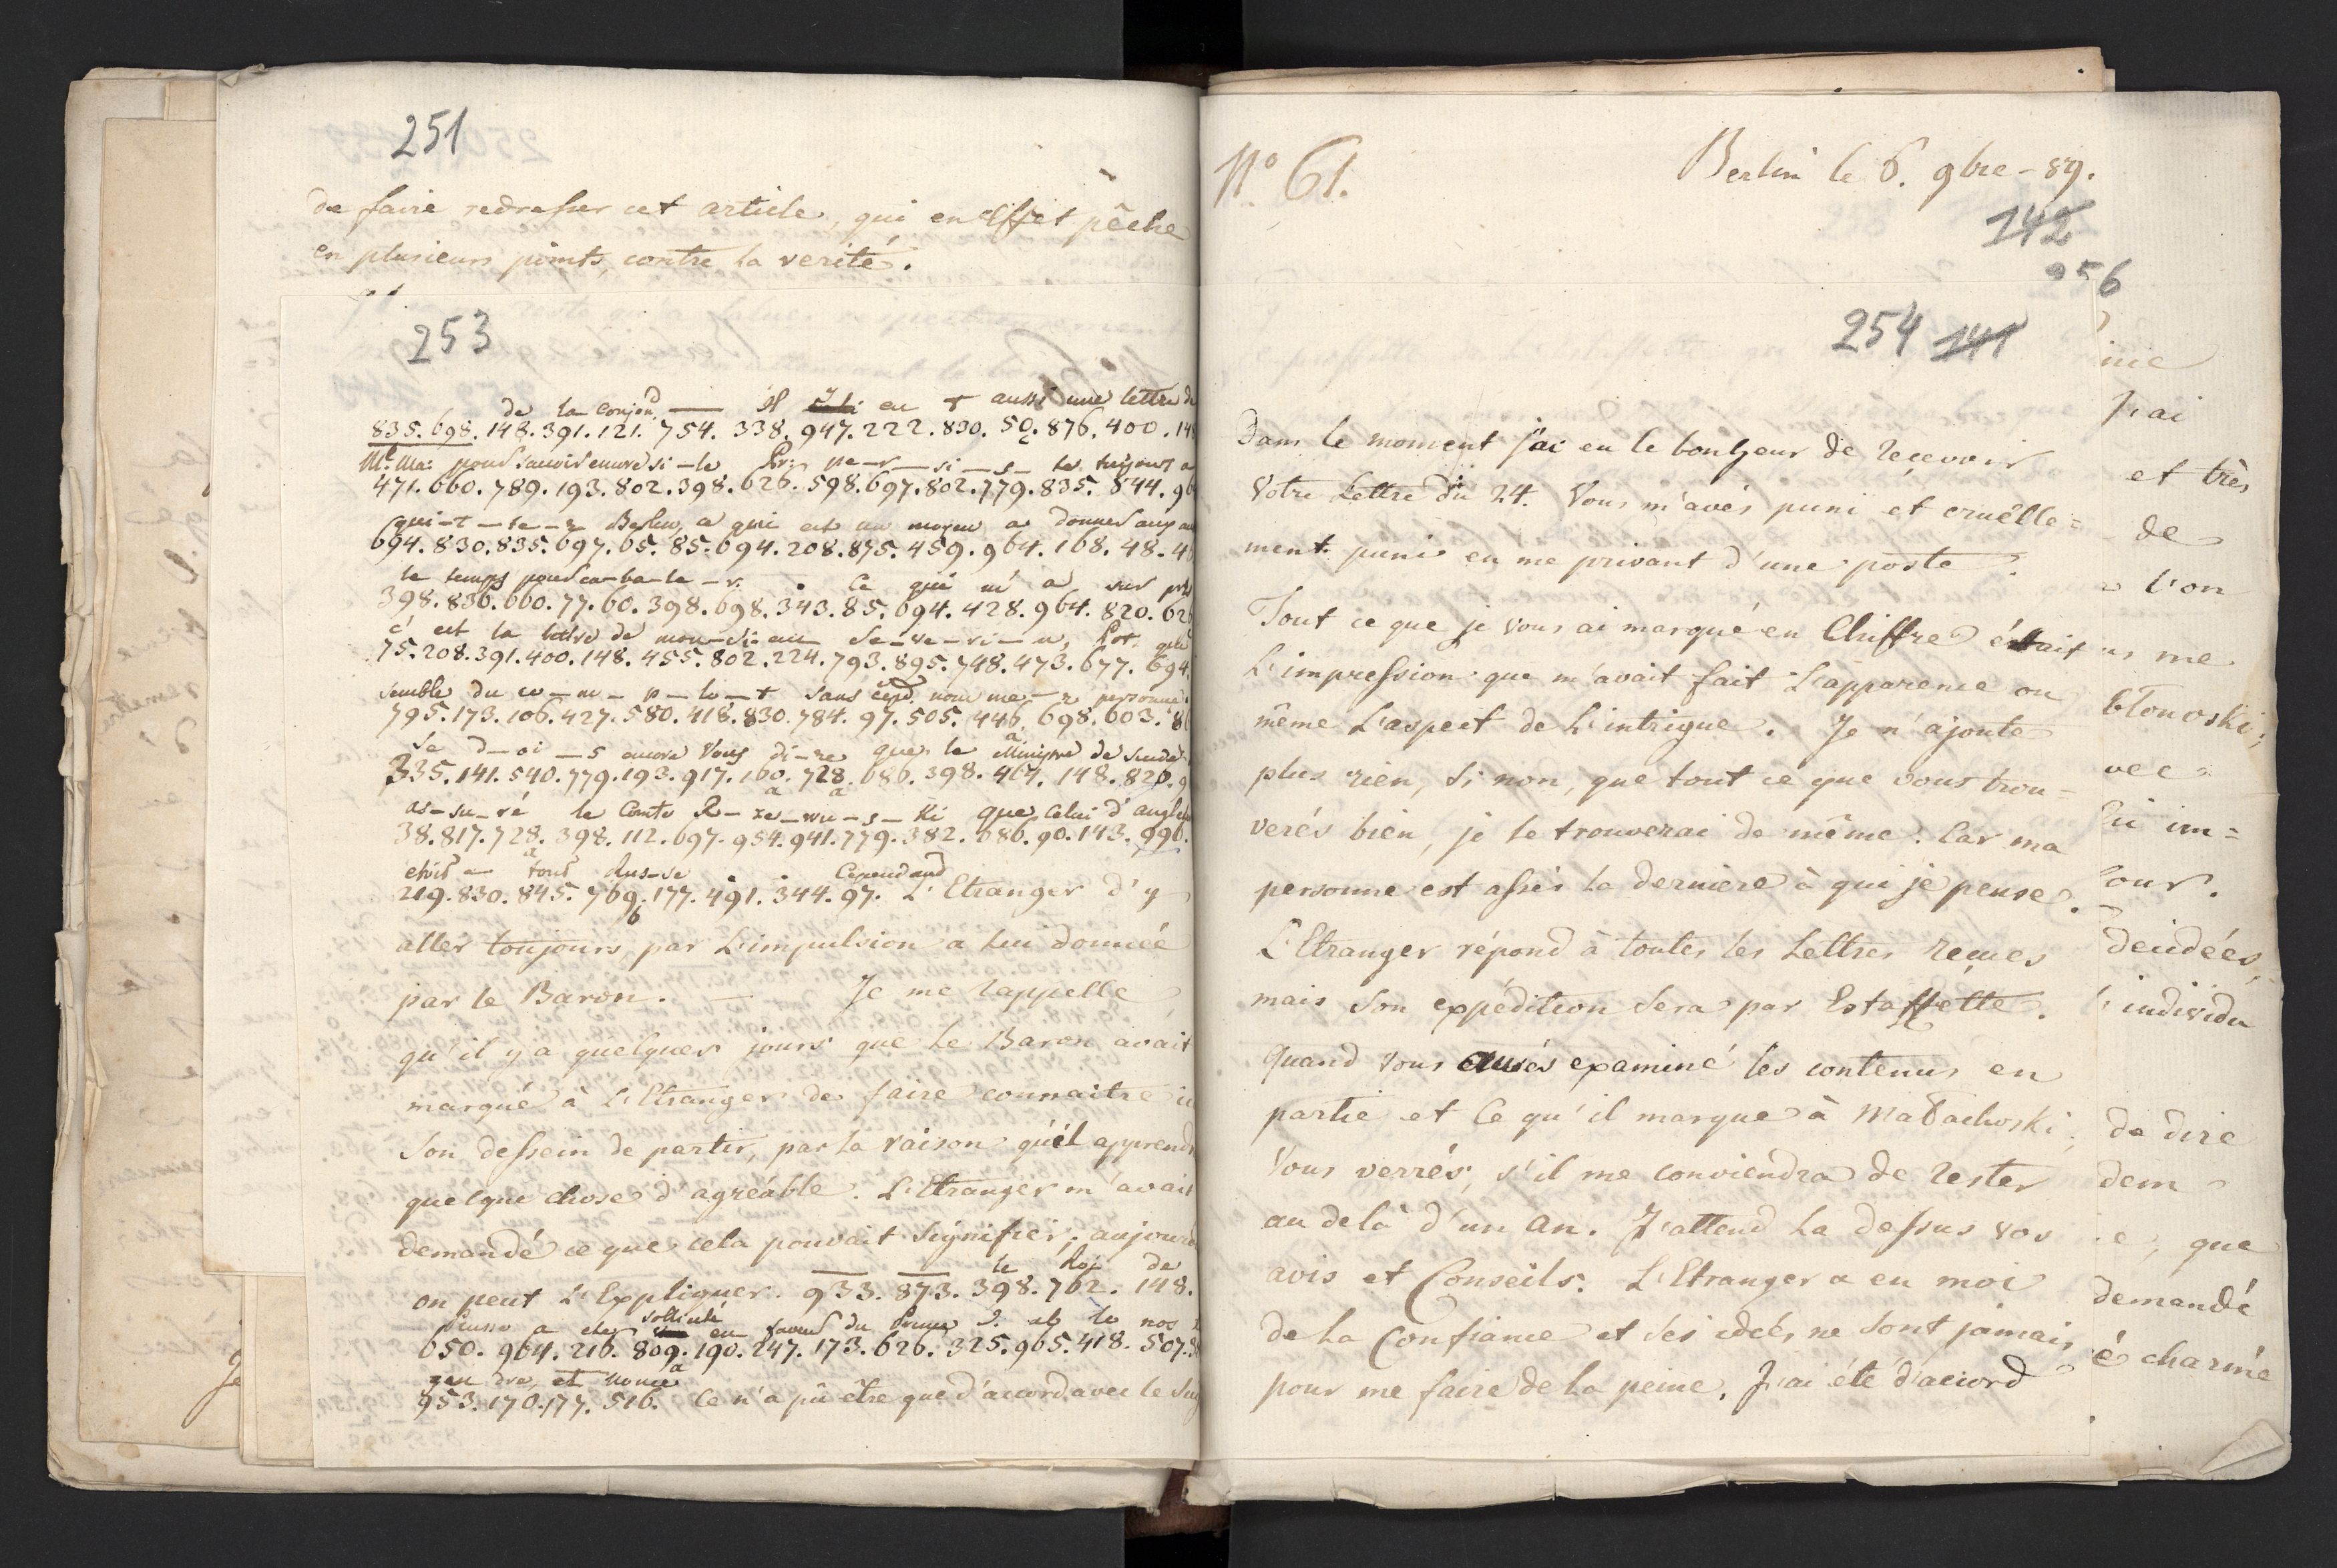 251
de faire redresser cet article, qui en Effet pêche
en plusieurs points, contre la verité.
253
de la conjon. — il eu t aussi une lettre de
835. 698. 148. 391. 121. 754. 338. 947. 222. 830. 50. 876. 400. 148
pour savoir encore si - le Pr: pe - r - si - s - te toujours a
471. 660. 789. 193. 802. 398. 626. 598. 697. 802. 779. 835. 844. 96
qui - t - te - r Berlin, ce qui est un moyen a donner aux
694. 830. 835. 697. 65. 85. 694. 208. 875. 459. 964. 168. 48. 4
le temps pour ca - ba - le - r. Ce qui m'a sur pris
398. 836. 660. 77. 60. 398. 698. 343. 85. 694. 428. 964. 820. 626
c'est la lettre de mon - si - eur Se - ve - ri - n, Pot. qui
75. 208. 391. 400. 148. 455. 802. 224. 793. 895. 748. 473. 677. 694
semble du co - m - p - lo - t sans cepd. nom me - r personne
795. 173. 106. 427. 580. 418. 830. 784. 97. 505. 446. 698. 603. 8
Je d - oi - s encore vous di - re que le Ministre de Suede
335. 141. 540. 779. 193. 917. 160. 728. 686. 398. 464. 148. 820. 9
as - su - ré le Comte R - ze - wu - s - ki que celui d'angle
38. 817. 728. 398. 112. 697. 954. 941. 779. 382. 686. 90. 143. 990.
etoit tout Rus - se. Cependand
219. 830. 845. 769. 177. 491. 344. 97. L'Etranger d'y
aller toujours, par L'impulsion a lui donnée
par le Baron. — Je me rappelle
qu'il y a quelques jours que le Baron avait
marqué à L'Etranger de faire connaitre ici
son dessein de partir, par la raison qu'il apprendr
quelque chose d'agréable. L'Etranger m'avait
demandé ce que cela pouvait signifier; aujourd
le Roi de
on peut L'Expliquer. 933. 873. 398. 762. 148.
Prusse a ete sollicité en faveur du Prince
650. 964. 216. 809. 190. 247. 173. 626. 325. 965. 418. 507.
gen dre, et
953. 170. 177. 516. Ce n'a pû être que d'accord avec le
No 61. Berlin le 6. 9bre - 89.
142
256
254 141
Dans le moment j'ai eu le bonheur de reçevoir
Votre Lettre du 24. Vous m'avés puni et cruëlle=
ment puni en me privant d'une poste.
Tout ce que je vous ai marqué en Chiffre était
L'impression que m'avait fait L'apparence ou
même L'aspect de L'intrigue. Je n'ajoute
plus rien, si non, que tout ce que vous trou=
verés bien, je le trouverai de même. Car ma
personne est assés la derniere à qui je pense.
L'Etranger répond à toutes les Lettres reçues
mais son expédition sera par Estaffette.
Quand vous aurés examiné les contenus en
partie et ce qu'il marque à Małachoski;
Vous verrés, s'il me conviendra de rester
au delà d'un an. J'attend la dessus vos
avis et Conseils. L'Etranger a en moi
de la Confiance et ses idées ne sont jamais
pour me faire de la peine. J'ai été d'accord
nie
J'ai
et très
de
l'on
us me
błonoski;
vec
lui im=
our.
decidées,
l'individu
de dire
dem
que
demandé
é charmé